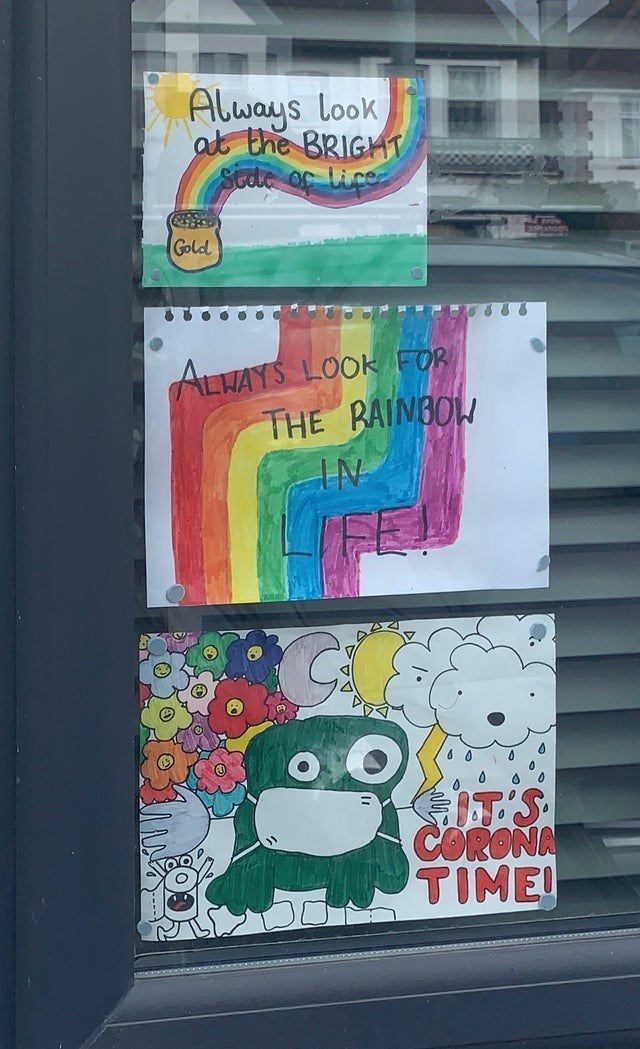 Always look
at the BRIGHT
side of life
Gold
ALWAYS LOOK FOR
THE RAINBOW
IN
LIFE!
IT'S
CORONA
TIME!